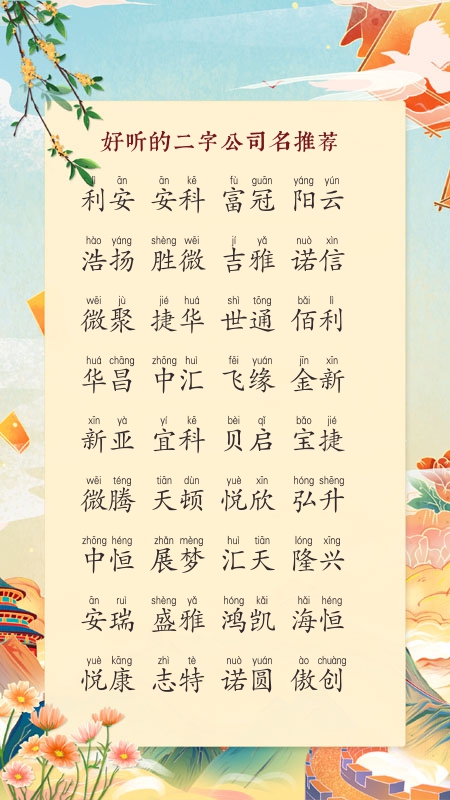 好听的二字公司名推荐
lì ān ān kē fù guān yáng yún
利安 安科 富冠 阳云
hào yáng shèng wēi jí yǎ nuò xìn
浩扬 胜微 吉雅 诺信
wēi jù jié huá shì tōng bǎi lì
微聚 捷华 世通 佰利
huá chāng zhōng huì fēi yuán jīn xīn
华昌 中汇 飞缘 金新
xīn yà yí kē bèi qǐ bǎo jié
新亚 宜科 贝启 宝捷
wēi téng tiān dùn yuè xīn hóng shēng
微腾 天顿 悦欣 弘升
zhōng héng zhǎn mèng huì tiān lóng xīng
中恒 展梦 汇天 隆兴
ān ruì shèng yǎ hóng kǎi hǎi héng
安瑞 盛雅 鸿凯 海恒
yuè kāng zhì tè nuò yuán ào chuàng
悦康 志特 诺圆 傲创